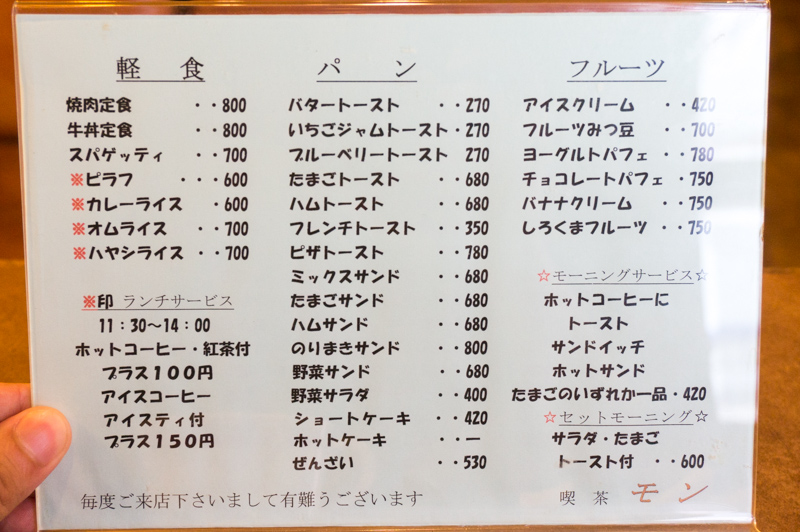 軽　食
焼肉定食　・・800
牛丼定食　・・800
スパゲッティ　・・700
※ピラフ　・・・600
※カレーライス　・600
※オムライス　・・700
※ハヤシライス・・700
※印 ランチサービス
11：30〜14：00
ホットコーヒー・紅茶付
プラス100円
アイスコーヒー
アイスティ付
プラス150円
パ　ン
バタートースト　・・270
いちごジャムトースト・270
ブルーベリートースト　270
たまごトースト　・・680
ハムトースト　・・680
フレンチトースト　・・350
ピザトースト　・・780
ミックスサンド　・・680
たまごサンド　・・680
ハムサンド　・・680
のりまきサンド　・・800
野菜サンド　・・680
野菜サラダ　・・400
ショートケーキ　・・420
ホットケーキ　・・ー
ぜんざい　・・530
フルーツ
アイスクリーム　・・420
フルーツみつ豆　・・700
ヨーグルトパフェ　・・780
チョコレートパフェ・750
バナナクリーム　・・750
しろくまフルーツ　・・750
☆モーニングサービス☆
ホットコーヒーに
トースト
サンドイッチ
ホットサンド
たまごのいずれか一品・420
☆セットモーニング☆
サラダ・たまご
トースト付　・・600
毎度ご来店下さいまして有難うございます
喫　茶　モン